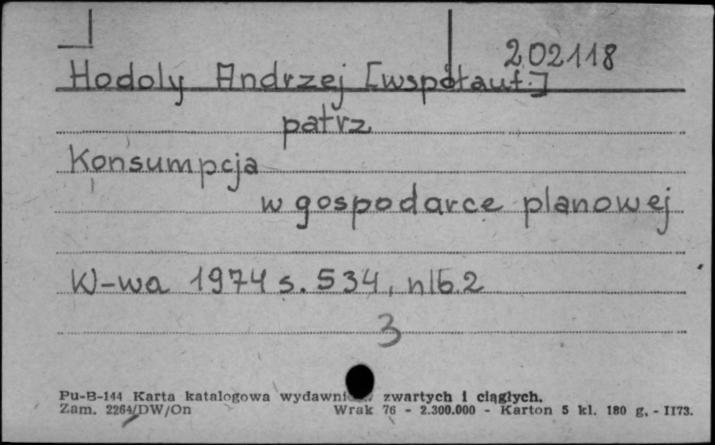 202118
Hodoly Andrzej [współaut.]
patrz
Konsumpcja
w gospodarce planowej
W-wa 1974 s. 534, nlb. 2
3
Pu-B-144 Karta katalogowa wydawni zwartych i ciągłych.
Zam. 2264/DW/On Wrak 76 - 2.300.000 - Karton 5 kl. 180 g. - II73.